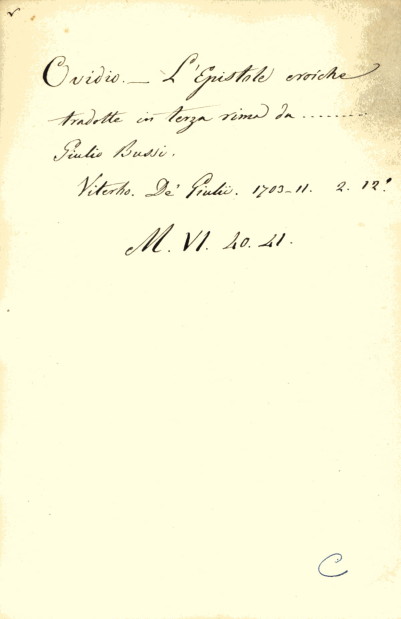 Ovidio. — L'Epistole eroiche
tradotte in terza rima da .........
Giulio Bussi.
Viterbo. De' Giulii. 1703-11. 2. 12.º
M. VI. 40. 41.
C